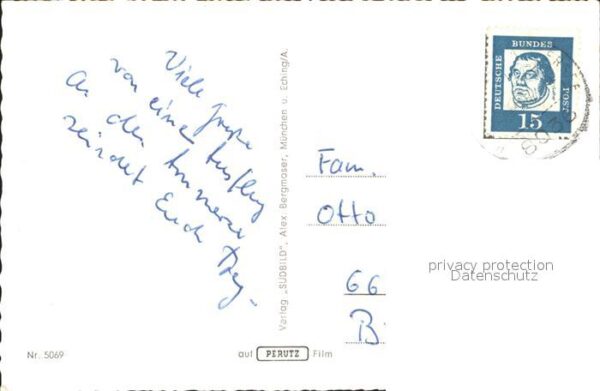 Viele Grüße
von einem Ausflug
an den Ammersee
sendet Euch
Verlag „SÜDBILD", Alex. Bergmoser, München u. Eching/A.
DEUTSCHE
BUNDES
POST
15
Fam.
Otto
66
B
privacy protection
Datenschutz
Nr. 5069
auf PERUTZ Film